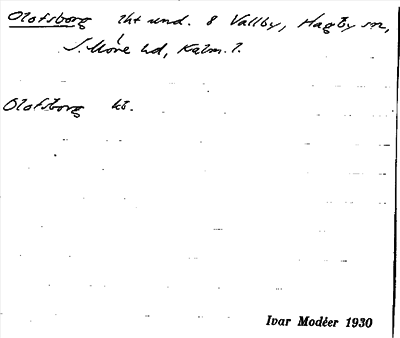 Olofsborg lht und. 8 Vallby, Hagby sn,
S. Möre hd, Kalm. l.
Olofsborg
Ivar Modéer 1930